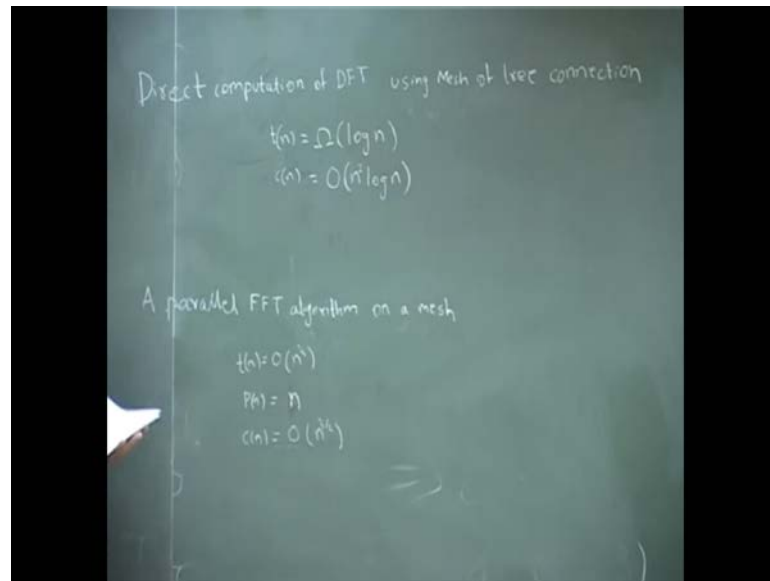 Direct computation of DFT using Mesh of tree connection
t(n) = Ω(log n)
c(n) = O(n² log n)
A parallel FFT algorithm on a mesh
t(n) = O(n^½)
P(n) = n
c(n) = O(n^3/2)